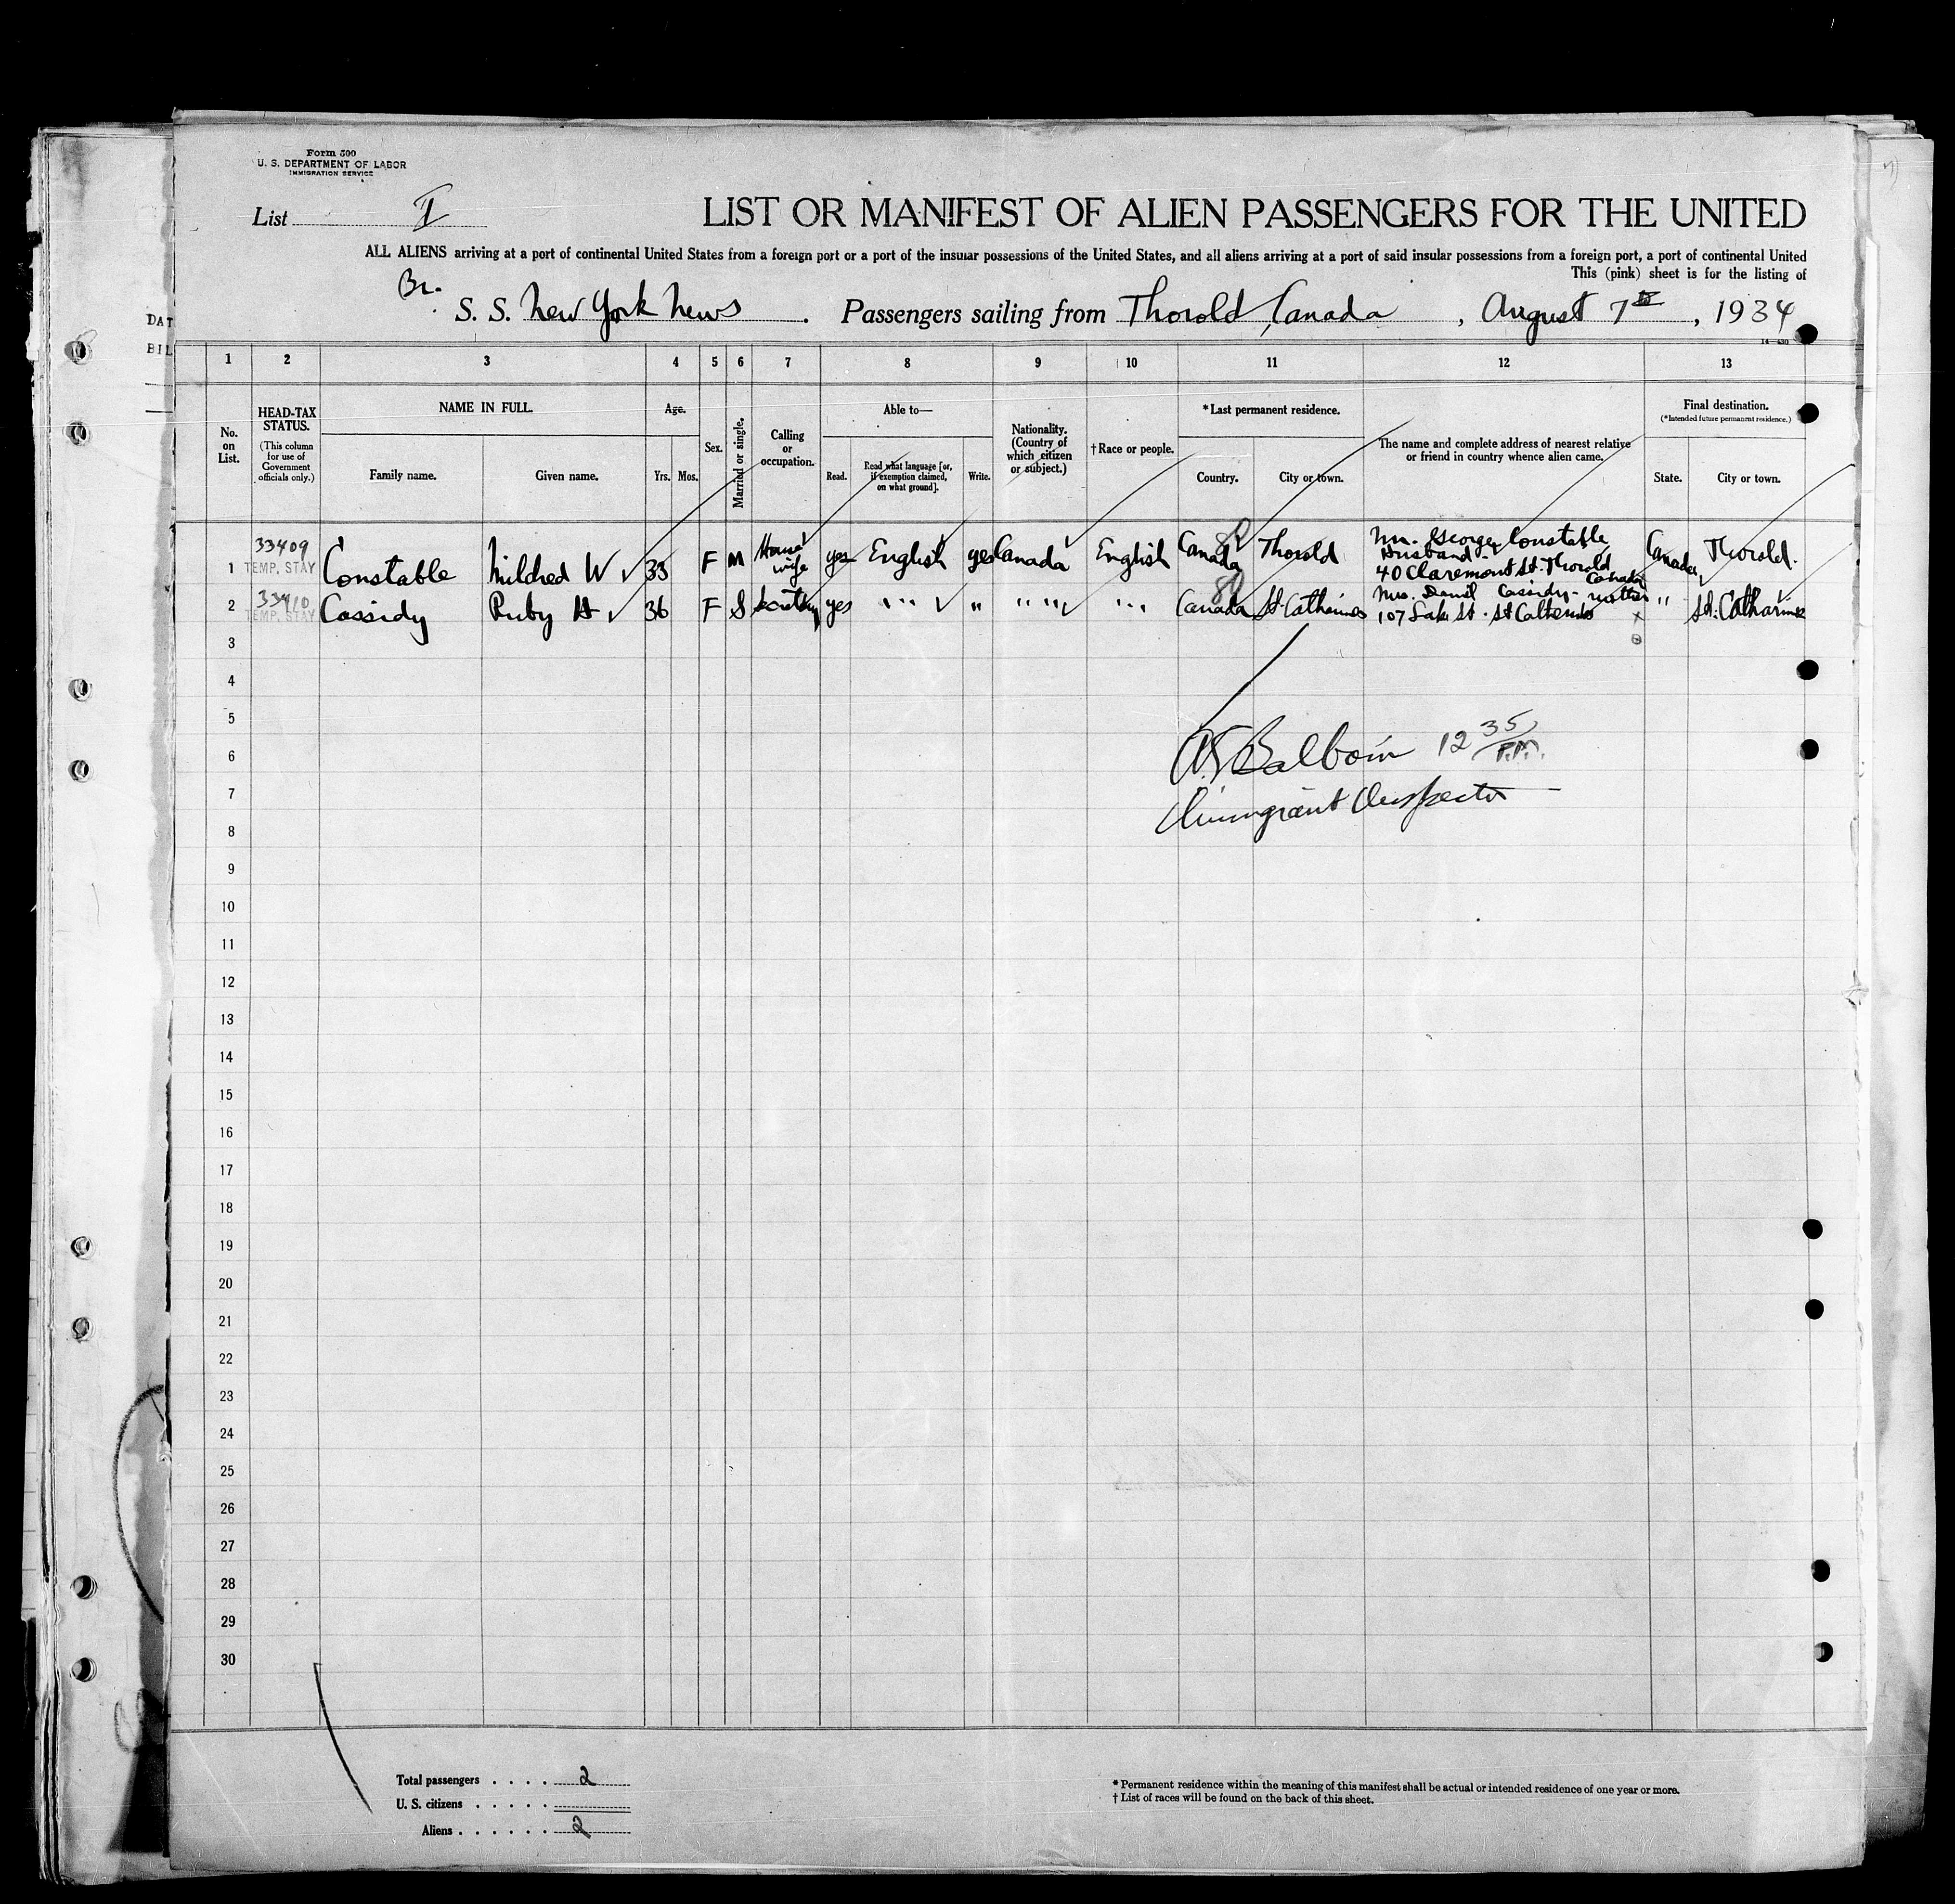 Form 500
U. S. DEPARTMENT OF LABOR
IMMIGRATION SERVICE
List I
LIST OR MANIFEST OF ALIEN PASSENGERS FOR THE UNITED
ALL ALIENS arriving at a port of continental United States from a foreign port or a port of the insular possessions of the United States, and all aliens arriving at a port of said insular possessions from a foreign port, a port of continental United
This (pink) sheet is for the listing of
Br. S. S. New York News . Passengers sailing from Thorold, Canada , August 7th , 1934
DAT
BIL
1 2 3 4 5 6 7 8 9 10 11 12 13
No. on List.
HEAD-TAX STATUS.
(This column for use of Government officials only.)
NAME IN FULL.
Family name. Given name.
Age.
Yrs. Mos.
Sex.
Married or single.
Calling or occupation.
Able to—
Read. Read what language [or, if exemption claimed, on what ground]. Write.
Nationality. (Country of which citizen or subject.)
†Race or people.
*Last permanent residence.
Country. City or town.
The name and complete address of nearest relative or friend in country whence alien came.
Final destination.
(*Intended future permanent residence.)
State. City or town.
1 33409 TEMP. STAY Constable Mildred W 33 F M House wife yes English yes Canada English Canada Thorold Mr. George Constable Husband 40 Claremont St. Thorold Canada Canada Thorold.
2 33410 TEMP. STAY Cassidy Ruby H 36 F S yes " " " " " " " " " " " Canada St. Catharines Mrs. Daniel Cassidy - mother 107 Lake St. St Catherines " St. Catharines
3
4
5
6
7
8
9
10
11
12
13
14
15
16
17
18
19
20
21
22
23
24
25
26
27
28
29
30
12 35 P.M.
Immigrant Inspector
Total passengers . . . . 2
U. S. citizens . . . . .
Aliens . . . . . . 2
* Permanent residence within the meaning of this manifest shall be actual or intended residence of one year or more.
† List of races will be found on the back of this sheet.